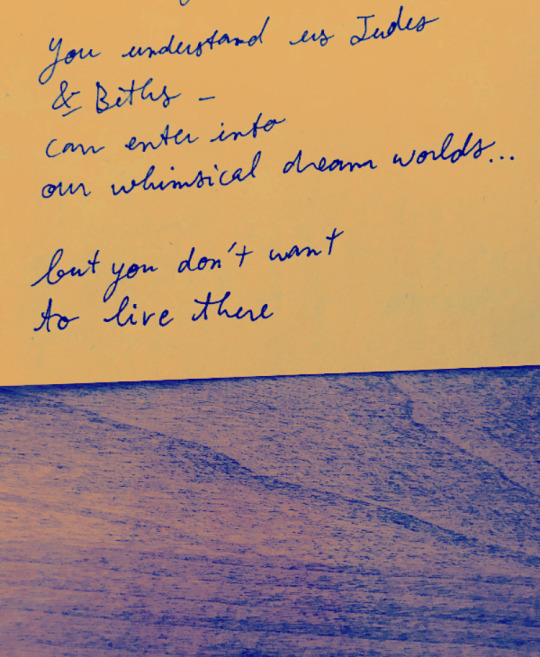 You understand us Judes
& Beths –
can enter into
our whimsical dream worlds...
but you don't want
to live there